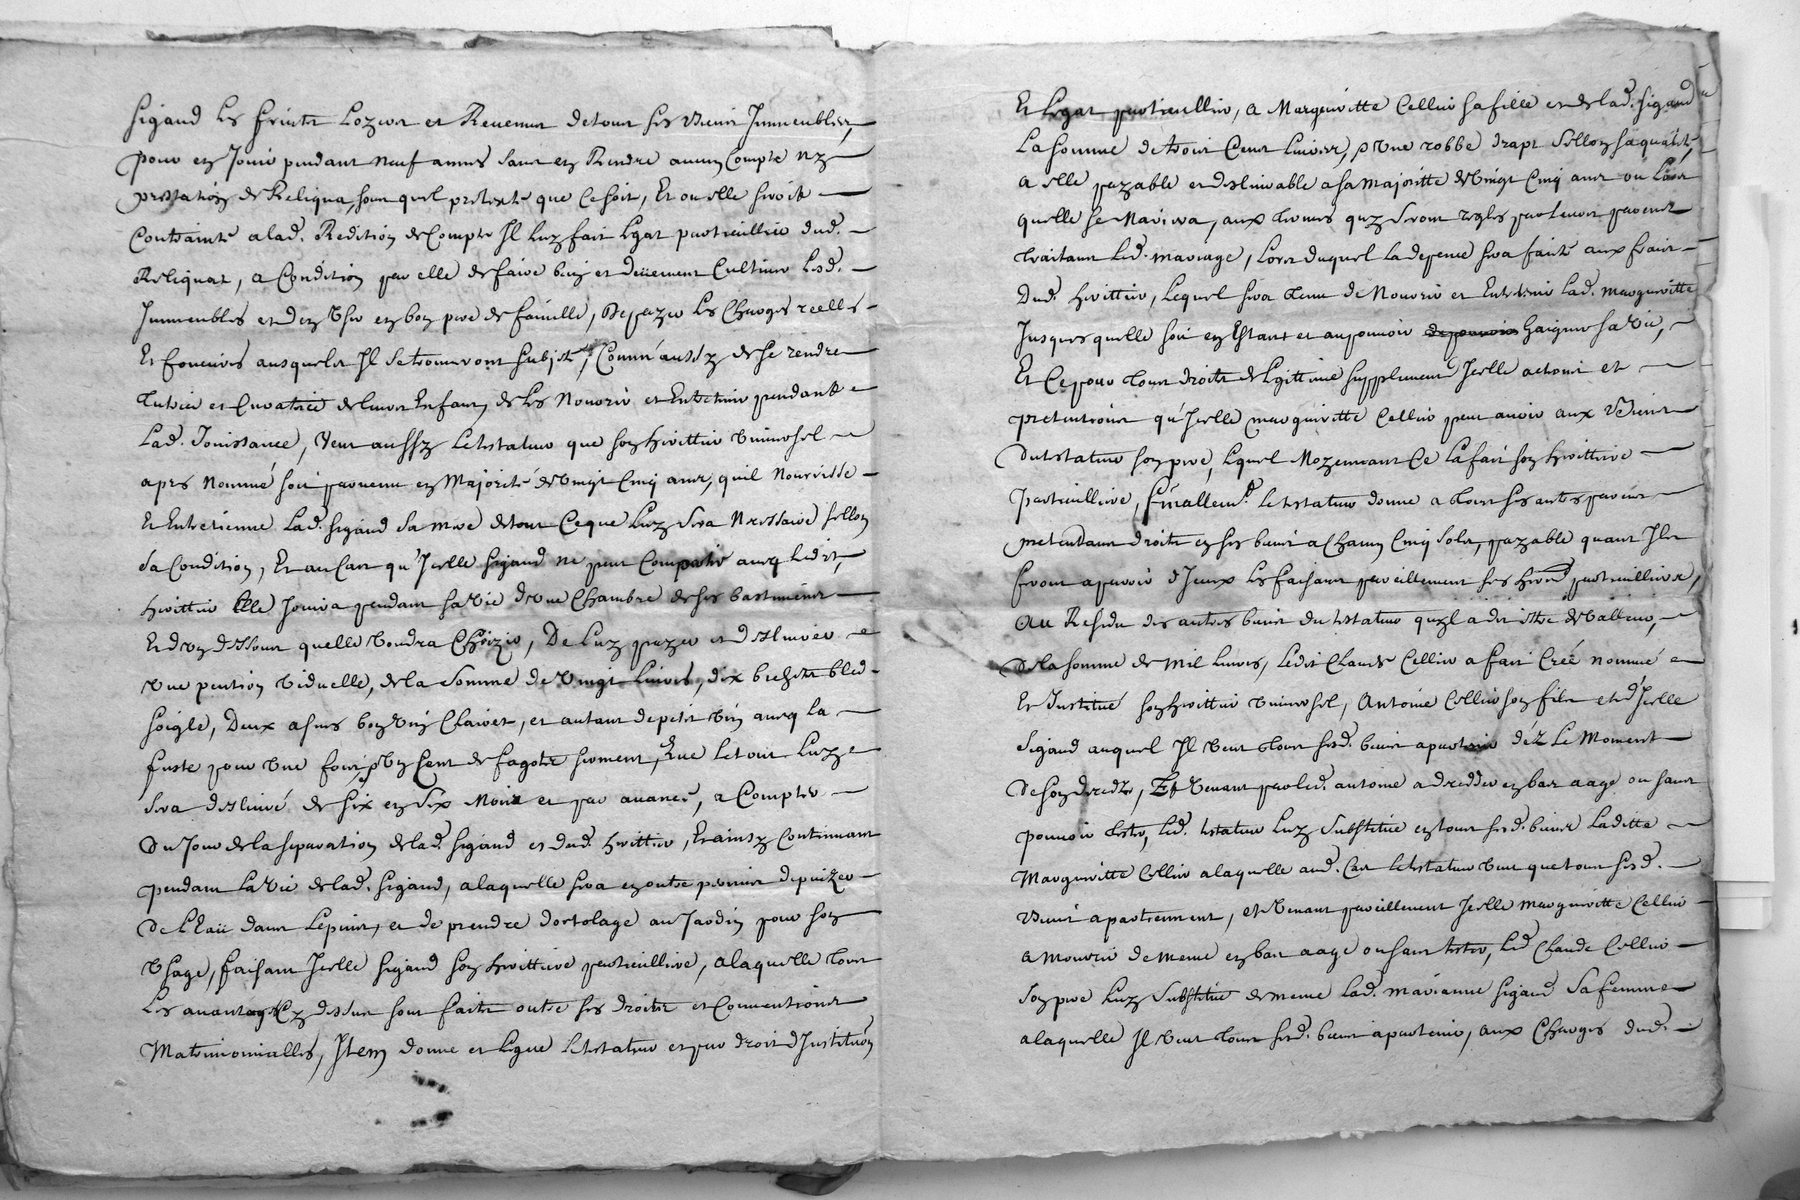 Sigaud les fruits Loziers et Revenus de tous ses biens Immeubles,
pour en Jouir pendant neuf annes sans en Rendre aucun Compte ny
prestation de Reliqua, sous quel pretexte que ce soit, Et ou elle seroit
Contrainte a lad. Redition de Compte Il luy fait legat particullier dud.
Reliquat, a Condition par elle de faire bien et deüement Cultiver lesd.
Immeubles et d'en User en bon pere de famille, De payer les Charges reelles
Et foncieres ausquelles Il se trouveront subjets, Comm'aussy de se rendre
tutrice et Curatrice de leurs Enfans, de les Nourrir et Entretenir pendant
lad. Jouissance, Veut aussy le testateur que son heritier universel
apres Nommé soit parvenu en Majorité de Vingt Cinq ans, quil Nourrisse
Et Entretienne lad. Sigaud sa mere de tout ce que luy sera Nessaire sellon
sa Condition, Et au Cas qu'Icelle Sigaud ne peut Compatir avecq ledit
heritier Elle Jouira pendant sa vie d'une Chambre de ses bastiments
Et d'un dessous quelle voudra Choizir, De luy payer et deslivrer
une pention viduelle, de la somme de Vingt Livres, dix bichets bled
soigle, Deux asnes bon vin Clairet, et autant de petit vin avecq la
fuste pour une fois, & Un Cent de fagots serment, Que le tout luy
sera deslivré de six en six Mois et par avance, a Compter
Du Jour de la separation de lad. Sigaud et dud. heritier, Et ainsy Continuant
pendant la vie de lad. Sigaud, a laquelle sera en outre permis de puizer
De L'Eaü dans Le puits, et de prendre d'ortolage au Jardin pour son
Usage, faisant Icelle Sigaud son heritiere particulliere, a laquelle tous
Les avantages Cy dessus sont faits outre ses droits et Conventions
Matrimonialles, Item donne et legue le testateur et par droit d'Institution
Et legat particullier, a Marguiritte Cellier sa fille et de lad. Sigaud
La somme de trois Cent livres, & Une robbe drapt sellon sa qualité,
a elle payable et deslivrable a sa majoritte de Vingt Cinq ans ou Lors
quelle se Mariera, aux termes quy seront regles par leurs parents
traitant led. mariage, Lors duquel la depence sera faite aux frais
Dud. heritier, Lequel sera tenu de Nourrir et Entretenir lad. marguiritte
Jusques quelle soit en Estant et au pouvoir de pouvoir Gaigner sa vie,
Et Ce pour tous droits de legittime supplement Icelle actions et
pretentions qu'Icelle marguiritte Cellier peut avoir aux Biens
du testateur son pere, lequel Moyennant Ce la fait son heritiere
particulliere, finallemt. le testateur donne a tous ses autres parens
pretendans droits en ses biens a chacun Cinq sols, payable quant Ils
feront aparoir d'Iceux les faisant pareillement ses herers. particulliers,
Au Residu des autres biens du testateur quy l a dit estre de Valleur,
De la somme de Mil livres, Ledit Claude Cellier a fait Creé nommé
Et Institué son heritier universel, Antoine Cellier son fils et d'Icelle
Sigaud auquel Il veut tous sesd. biens apartenir déz Le Moment
De son decedz, Et Venant par led. antoine a dcedder en bas aage ou sans
pouvoir tester, led. testateur luy substitue en tous sesd. biens Laditte
Marguiritte Cellier a laquelle aud. Cas le testateur veut que tous sesd.
Biens apartiennent, et Venant pareillement Icelle marguiritte Cellier
a Mourir de meme en bas aage ou sans tester, led. Claude Cellier
son pere luy substitue de meme lad. marianne Sigaud sa femme
a laquelle Il veut tous sesd. biens apartenir, aux Charges dud.